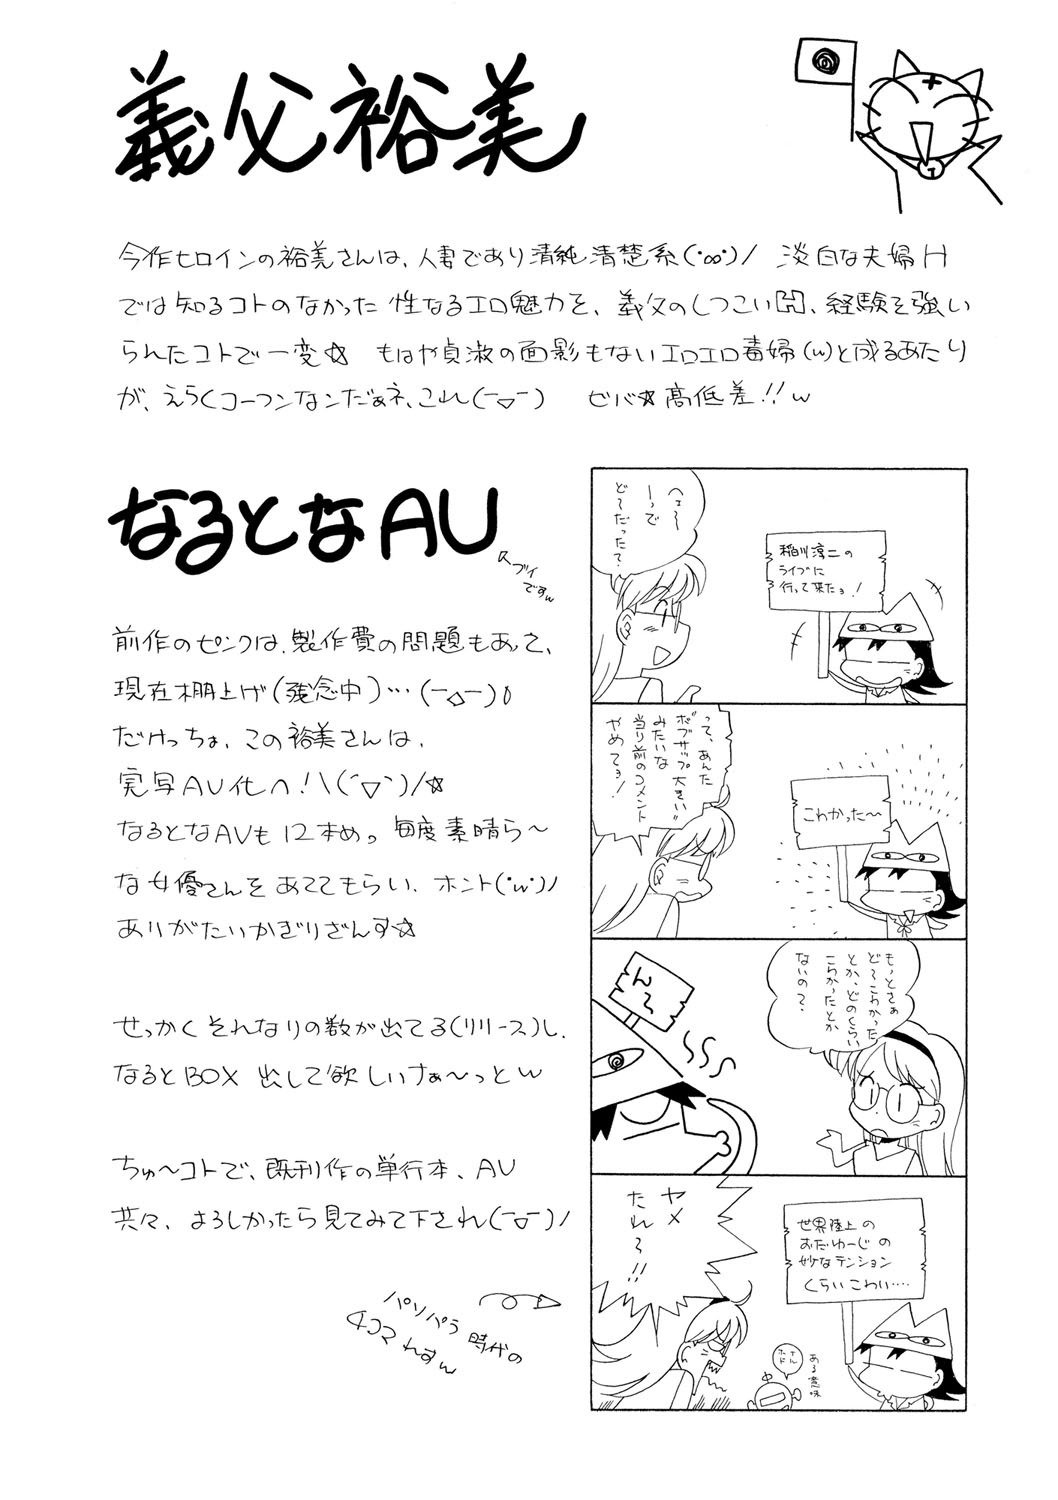 義父裕美
今作ヒロインの裕美さんは、人妻であり清純清楚系(･∞･)/ 淡白な夫婦H
では知るコトのなかった 性なるエロ魅力を、義父のしつこいH、経験を強い
られたコトで一変☆ もはや貞淑の面影もないエロエロ毒婦(w)と成るあたり
が、えらくコーフンなンだぁネ、これ(ー▽ー) ビバ☆高低差!!w
なるとなAV
スブイ
ですw
前作のピンクは、製作費の問題もあって、
現在棚上げ(残念中)…(ー△ー)0
だけっちょ、この裕美さんは、
実写AV化へ!\(´▽`)/☆
なるとなAVも12本めっ 毎度素晴ら〜
な女優さんをあててもらい、ホント('w')/
ありがたいかぎりざんす☆
せっかくそれなりの数が出てる(リリース)し、
なるとBOX 出して欲しいけぁ〜っとw
ちゅ〜コトで、既刊作の単行本、AV
共々、よろしかったら見てみて下され(ー▽ー)/
パソパラ時代の
4コマれすw
稲川淳二の
ライブに
行って来たョ!
ヘェ〜
ーっで
ど〜だった?
こわかった〜
って、あんた
ボブサップ大きい"
みたいな
当り前のコメント
やめてョ!
もっとさぁ
ど〜こわかった
とか、どのくらい
こわかったとか
ないの?
ん〜
世界陸上の
おだゆーじの
妙なテンション
くらいこわい‥‥
ヤメ
たれ〜!!
ナル
ホド
ある意味